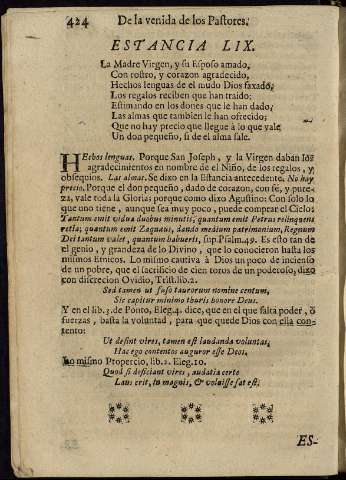 424 De la venida de los Pastores.
ESTANCIA LIX.
La Madre Virgen, y su Esposo amado,
Con rostro, y corazon agradecido,
Hechos lenguas de el mudo Dios faxado,
Los regalos reciben que han traido;
Estimando en los dones que le han dado,
Las almas que tambien le han ofrecido;
Que no hay precio que llegue à lo que vale
Un don pequeño, si de el alma sale.
HEchos lenguas. Porque San Joseph, y la Virgen daban los
agradecimientos en nombre de el Niño, de los regalos, y
obsequios. Las almas. Se dixo en la Estancia antecedente. No hay
precio. Porque el don pequeño, dado de corazon, con fe, y pure-
za, vale toda la Gloria; porque como dixo Agustino: Con solo lo
que uno tiene, aunque sea muy poco, puede comprar el Cielo:
Tantum emit vidua duobus minutis, quantum emit Petrus relinquens
retia; quantum emit Zaqueus, dando medium patrimonium, Regnum
Dei tantum valet, quantum habueris, sup. Psalm. 49. Es esto tan de
el genio, y grandeza de lo Divino, que lo conocieron hasta los
mismos Etnicos. Lo mismo cautiva à Dios un poco de incienso
de un pobre, que el sacrificio de cien toros de un poderoso, dixo
con discrecion Ovidio, Trist. lib. 2.
Sed tamen ut fuso taurorum nomine centum,
Sic capitur minimo thuris honore Deus.
Y en el lib. 3. de Ponto, Eleg. 4. dice, que en el que falta poder, ò
fuerzas, basta la voluntad, para que quede Dios con ella con-
tento:
Ut desint vires, tamen est laudanda voluntas,
Hac ego contentos auguror esse Deos.
Lo mismo Propercio, lib. 2. Eleg. 10.
Quod si deficiant vires, audatia certe
Laus erit, in magnis, & voluisse sat est.
ES-